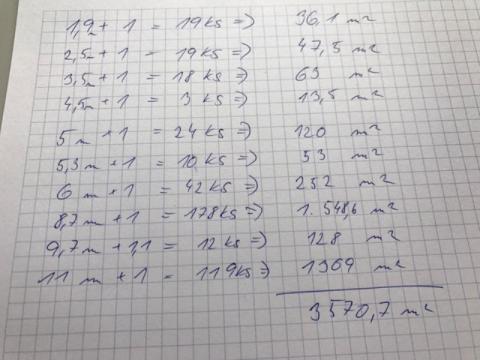 1,9m + 1 = 19 ks => 36,1 m²
2,5m + 1 = 19 ks => 47,5 m²
3,5m + 1 = 18 ks => 63 m²
4,5m + 1 = 3 ks => 13,5 m²
5 m + 1 = 24 ks => 120 m²
5,3 m + 1 = 10 ks => 53 m²
6 m + 1 = 42 ks => 252 m²
8,7 m + 1 = 178 ks => 1.548,6 m²
9,7 m + 1,1 = 12 ks => 128 m²
11 m + 1 = 119 ks => 1309 m²
3570,7 m²